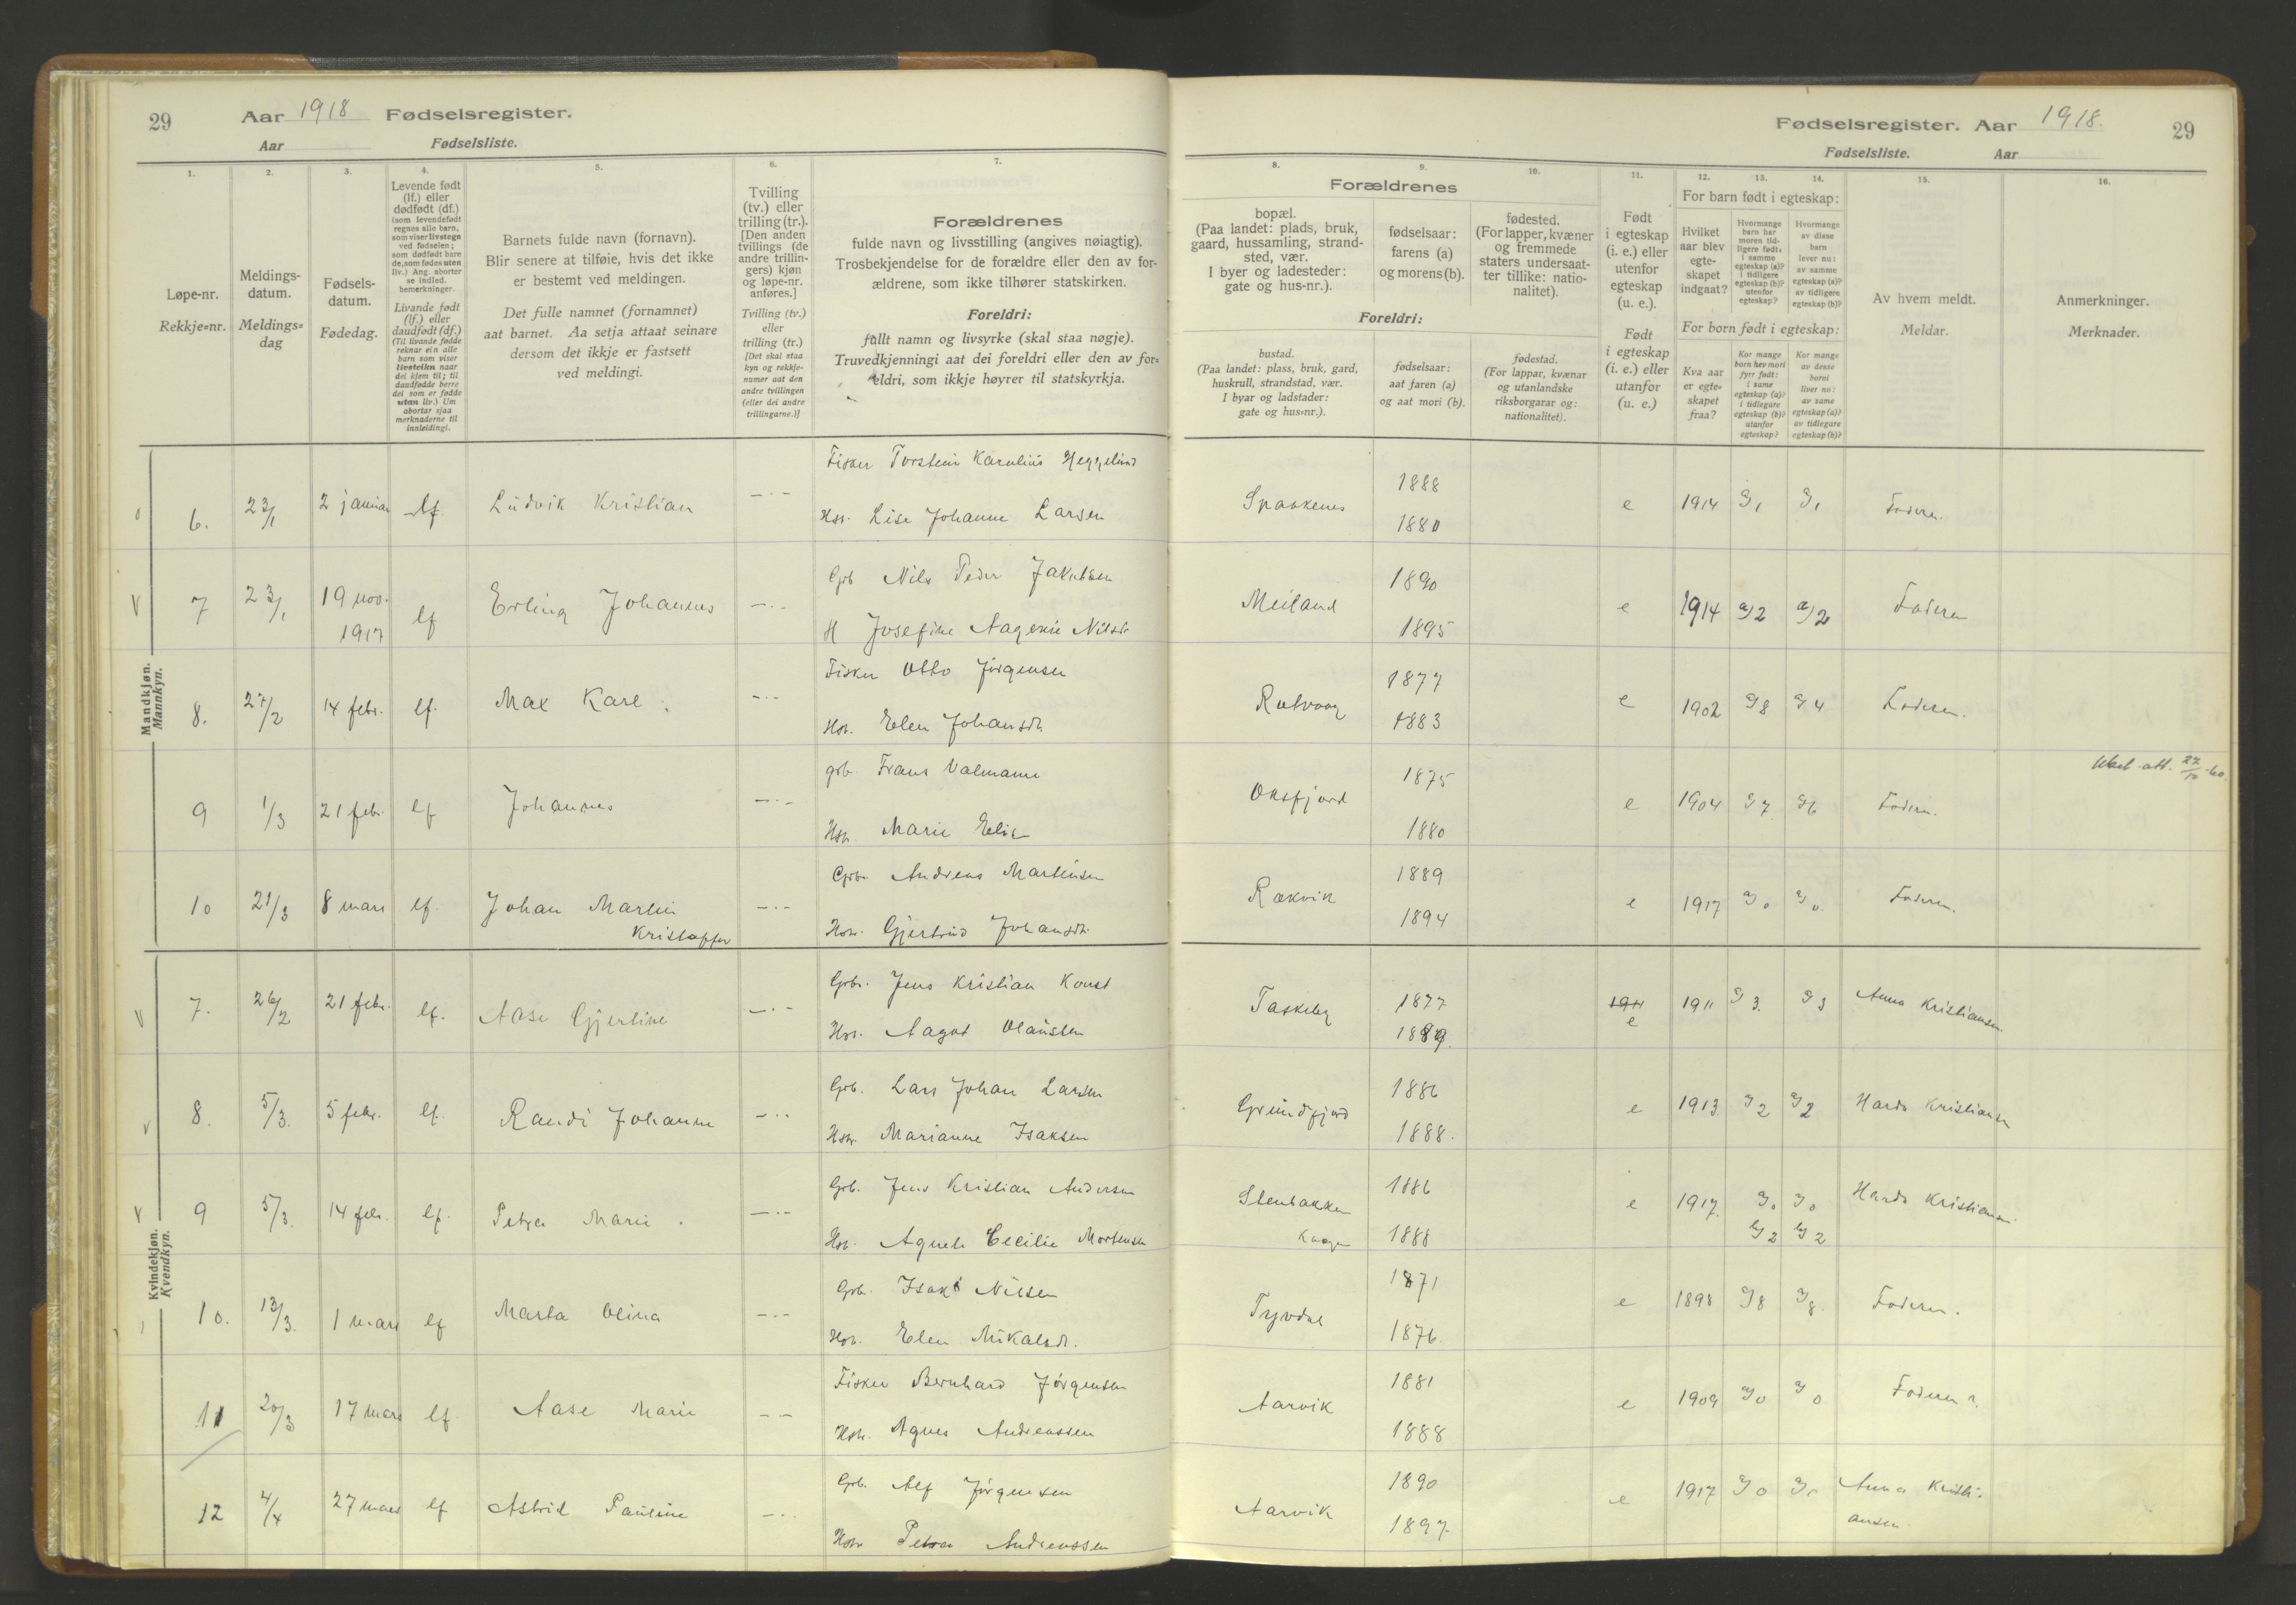 29
Aar 1918 Fødselsregister.
Aar Fødselsliste.
1.
2.
3.
4.
5.
6.
7.
Løpe-nr.
Rekkje=nr.
Meldings-
datum.
Meldings=
dag
Fødsels-
datum.
Fødedag.
Levende født
(lf.) eller
dødfødt (df.)
(som levendefødt
regnes alle barn,
som viser livstegn
ved fødselen;
som dødfødt bare
de, som fødes uten
liv.) Ang. aborter
se indled.
bemerkninger.
Livande født
(lf.) eller
daudfødt (df.)
(Til livande fødde
reknar ein alle
barn som viser
livsteikn naar
dei kjem til; til
daudfødde berre
dei som er fødde
utan liv.) Um
abortar sjaa
merknaderne til
innleidingi.
Barnets fulde navn (fornavn).
Blir senere at tilføie, hvis det ikke
er bestemt ved meldingen.
Det fulle namnet (fornamnet)
aat barnet. Aa setja attaat seinare
dersom det ikkje er fastsett
ved meldingi.
Tvilling
(tv.) eller
trilling (tr.).
[Den anden
tvillings (de
andre trillin-
gers) kjøn
og løpe-nr.
anføres.]
Tvilling (tv.)
eller
trilling (tr.)
[Det skal staa
kyn og rekkje-
numer aat den
andre tvillingen
(eller dei andre
trillingarne.)]
Forældrenes
fulde navn og livsstilling (angives nøiagtig).
Trosbekjendelse for de forældre eller den av for-
ældrene, som ikke tilhører statskirken.
Foreldri:
fullt namn og livsyrke (skal staa nøgje).
Truvedkjenningi aat dei foreldri eller den av for=
eldri, som ikkje høyrer til statskyrkja.
Mandkjøn.
Mannkyn.
Fisker Torstein Karelius Heggelund
6. 23/1 2 januar lf. Ludvik Kristian —·—
Hst. Lise Johanne Larsen
Grb Nils Peder Jakobsen
7 23/1 19 nov. 1917 lf Erling Johannes —·—
H Josefine Aagenie Nilsdr
Fisker Otto Jörgensen
8. 27/2 14 febr. lf. Max Karl. —·—
Hst. Elen Johansdtr
grb. Frans Valmann
9 1/3 21 febr. lf Johannes —·—
Hst. Marie Elise
Grbr. Andreas Martinsen
10 21/3 8 mars lf. Johan Martin —·—
Kristoffer
Hstr. Gjertrud Johansdtr.
Kvindekjøn.
Kvendkyn.
Grbr. Jens Kristian Konst
7. 26/2 21 febr. lf. Aase Gjertine —·—
Hst. Aagot Olaussen
Grb. Lars Johan Larsen
8. 5/3. 5 febr. lf. Randi Johanne —·—
Hstr. Marianne Isaksen
Grb. Jens Kristian Andersen
9 5/3. 14 febr. lf. Petra Marie. —·—
Hst. Agnete Cecilie Mortensen
Grb. Isak Nilsen
10. 13/3. 1 mars lf Marta Olina —·—
Hst. Elen Mikalsdr.
Fisker Bernhard Jörgensen
11 20/3 17 mars lf. Aase Marie — —
Hstr. Agnes Andreassen
Grb. Alf Jörgensen
12 4/4 27 mars lf Astrid Pauline —·—
Hstr Petra Andreassen
Fødselsregister. Aar 1918.
29
Fødselsliste. Aar
8.
9.
10.
11.
12.
13.
14.
15.
16.
Forældrenes
bopæl.
(Paa landet: plads, bruk,
gaard, hussamling, strand-
sted, vær.
I byer og ladesteder:
gate og hus-nr.).
fødselsaar:
farens (a)
og morens (b).
fødested.
(For lapper, kvæner
og fremmede
staters undersaat-
ter tillike: natio-
nalitet).
Foreldri:
bustad.
(Paa landet: plass, bruk, gard,
huskrull, strandstad, vær.
I byar og ladstader:
gate og hus=nr.).
fødselsaar:
aat faren (a)
og aat mori (b).
fødestad.
(For lappar, kvænar
og utanlandske
riksborgarar og:
nationalitet).
Født
i egteskap
(i. e.) eller
utenfor
egteskap
(u. e.).
Født
i egteskap
(i. e.) eller
utanfor
(u. e.)
For barn født i egteskap:
Hvilket
aar blev
egte-
skapet
indgaat?
Hvormange
barn har
moren tid-
ligere født:
i samme
egteskap (a)?
i tidligere
egteskap (b)?
utenfor
egteskap?
Hvormange
av disse
barn
lever nu:
av samme
egteskap (a)?
av tidligere
egteskap (b)?
For born født i egteskap:
Kva aar
er egte=
skapet
fraa?
Kor mange
born hev mori
fyrr født:
i same
egteskap (a)?
i tidlegare
egteskap (b)?
utanfor
egteskap?
Kor mange
av desse
borni
liver no:
av same
egteskap (a)?
av tidlegare
egteskap (b)?
Av hvem meldt.
Meldar.
Anmerkninger.
Merknader.
Spaakenes 1888 1880 e 1914 a/1 a/1 Faderen.
Meiland 1890 1895 e 1914 a/2 a/2 Faderen
Rotvaag 1877 1883 e 1902 a/8 a/4 Faderen.
Oksfjord 1875 1880 e 1904 a/7 a/6 Faderen.
Rakvik 1889 1894 e 1917 a/0 a/0. Faderen.
Taskeby 1877 1889. 1911 e 1911 a/3. a/3 Anna Kristiansen
Grundfjord 1886 1888. e 1913 a/2 a/2 Harda Kristiansen
Stenbakken 1886 1888 e 1917. a/0 a/0 b/2 b/2 Harda Kristiansen
Tryvdal 1871 1876. e 1898 a/8 a/8. Faderen.
Aarvik 1881 1888 e 1909 a/0 a/0 Faderen
Aarvik 1890 1897. e 1917 a/0 a/0 Anna Kristi-
ansen